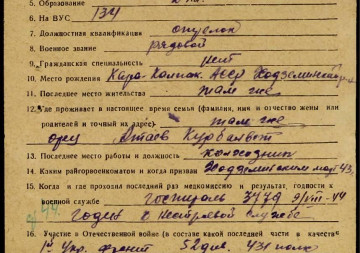 5. Образование
6. На ВУС 134
7. Должностная квалификация стрелок
8. Военное звание рядовой
9. Гражданская специальность нет
10. Место рождения Кара-Калпак. АССР Ходзейлинский
11. Последнее место жительства там же
12. Где проживает в настоящее время семья (фамилия, имя и отчество жены или
родителей и точный их адрес) там же
отец Атаев Курбанвот
13. Последнее место работы и должность колхозник
14. Каким райгорвоенкоматом и когда призван Ходзейлинским 43,
15. Когда и где проходил последний раз медкомиссию и результат, годность к
военной службе госпиталь 3779 9/VIII-44
годен к нестроевой службе
16. Участие в Отечественной войне (в составе какой последней части в качестве
1й Укр. фронт 52 див. 431 полк